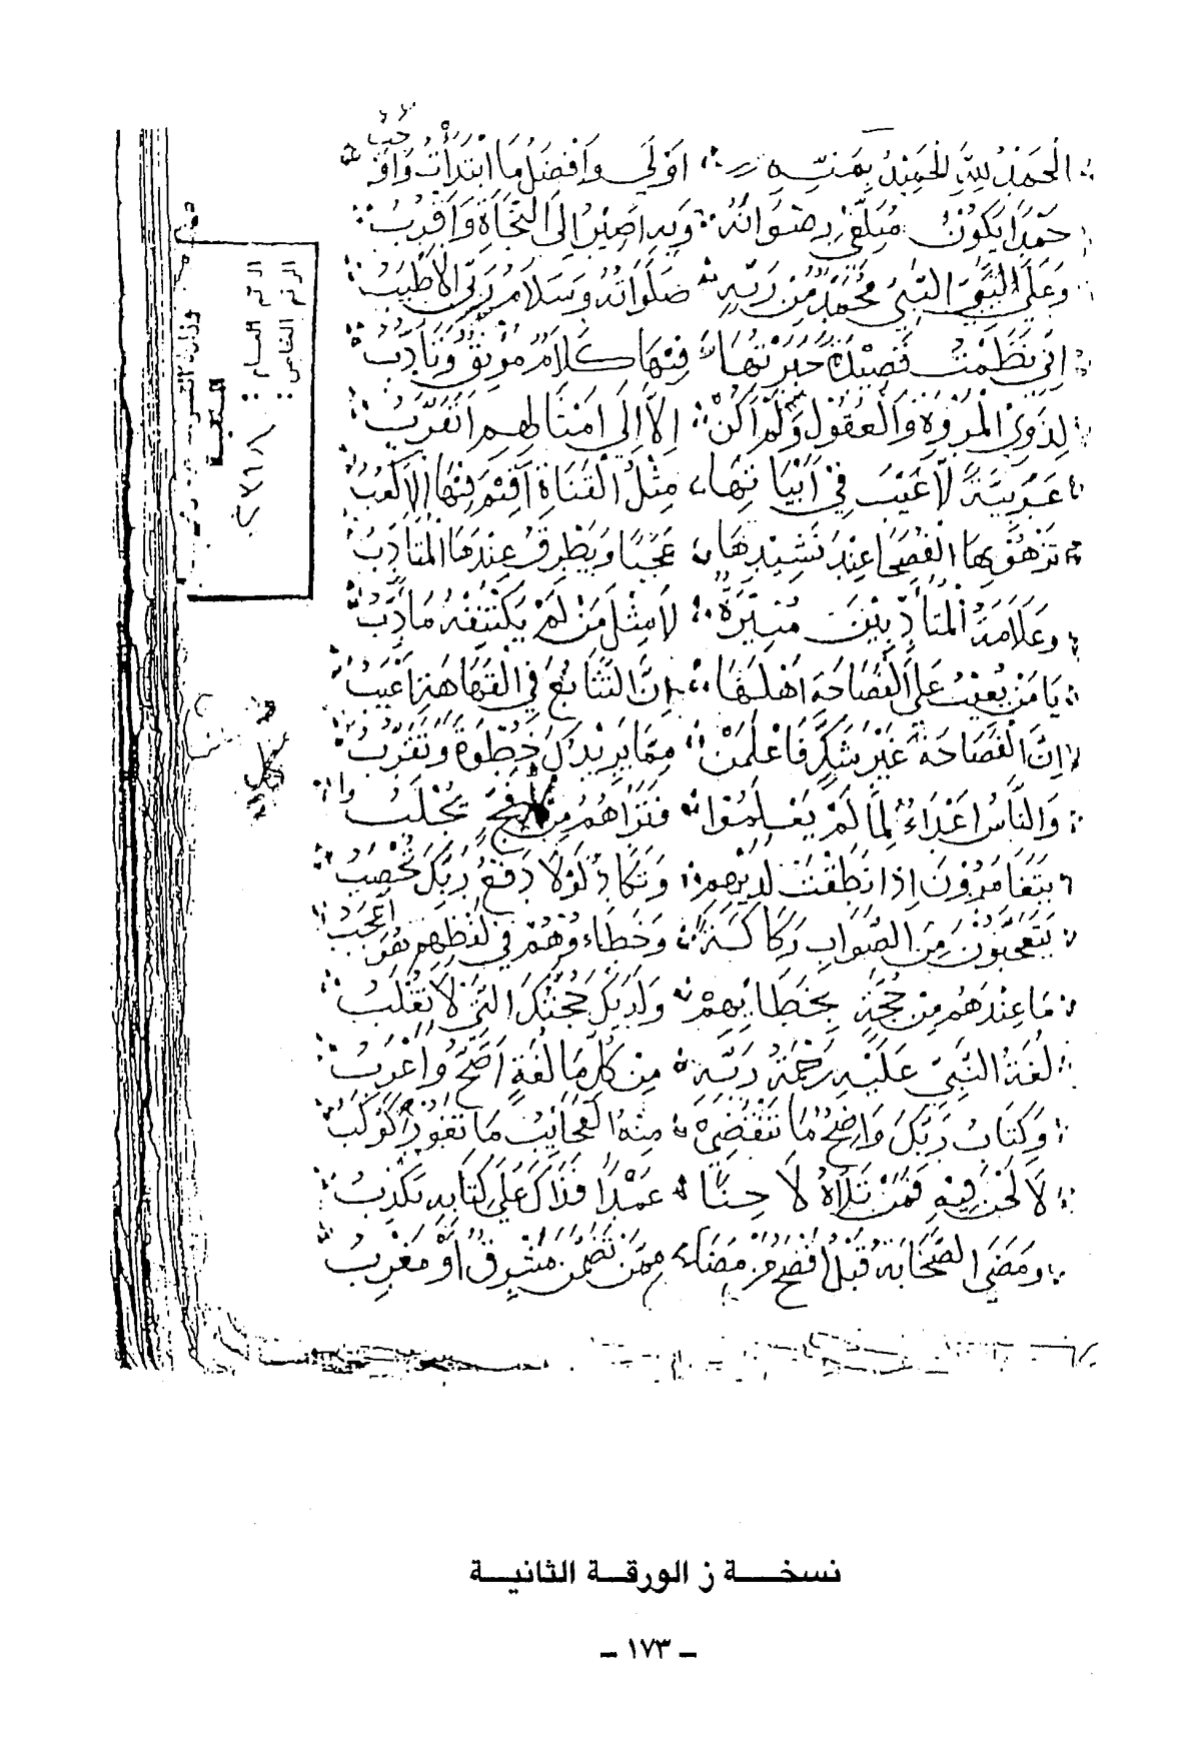 الْحَمْدُ لِلَّهِ الْحَمِيدِ بِمَنِّهِ أَوْلَى وَأَفْضَلُ مَا ابْتَدَأْتُ وَأَوْجَبُ
حَمْدًا يَكُونُ مُبَلِّغِي رِضْوَانَهُ وَبِهِ أَصِيرُ إِلَى النَّجَاةِ وَأَقْرُبُ
وَعَلَى النَّبِيِّ مُحَمَّدٍ مِنْ رَبِّهِ صَلَوَاتُهُ وَسَلَامُ رَبِّي الْأَطْيَبُ
إِنِّي نَظَمْتُ قَصِيدَةً حَبَّرْتُهَا فِيهَا كَلَامٌ مُونِقٌ وَتَأَدُّبُ
لِذَوِي الْمُرُوَّةِ وَالْعُقُولِ وَلَمْ أَكُنْ إِلَّا إِلَى أَمْثَالِهِمْ أَتَقَرَّبُ
عَرَبِيَّةً لَا عَيْبَ فِي أَبْيَاتِهَا مِثْلُ الْقَنَاةِ أُقِيمَ فِيهَا الْأَكْعُبُ
تَزْهُو بِهَا الْفُصَحَا عِنْدَ نَشِيدِهَا عَجَبًا وَيُطْرِقُ عِنْدَهَا الْمُتَأَدِّبُ
وَعَلَامَةُ الْمُتَأَدِّبِينَ مُنِيرَةٌ لَا مِثْلَ مَنْ لَمْ يَكْتَنِفْهُ مَأْدَبُ
يَا مَنْ يُعِيبُ عَلَى الْفَصَاحَةِ أَهْلَهَا إِنَّ التَّتَابُعَ فِي الْفَهَاهَةِ أَعْيَبُ
إِنَّ الْفَصَاحَةَ غَيْرَ شَكٍّ فَاعْلَمَنْ مِمَّا يَزِيدُكَ خُطْوَةً وَتَقَرُّبُ
وَالنَّاسُ أَعْدَاءٌ لِمَا لَمْ يَعْلَمُوا فَتَرَاهُمُ مِنْ كُلِّ فَجٍّ يُجْلَبُوا
يَتَغَامَزُونَ إِذَا نَطَقْتَ لَدَيْهِمُ وَتَكَادُ لَوْلَا دَفْعُ رَبِّكَ تُحْصَبُ
يَتَعَجَّبُونَ مِنَ الصَّوَابِ رَكَاكَةً وَخَطَاءُهُمْ فِي لَفْظِهِمْ هُوَ أَعْجَبُ
مَا عِنْدَهُمْ مِنْ حُجَّةٍ بِخَطَائِهِمْ وَلَدَيْكَ حُجَّتُكَ الَّتِي لَا تُغْلَبُ
لُغَةُ النَّبِيِّ عَلَيْهِ رَحْمَةُ رَبِّهِ مِنْ كُلِّ مَا لُغَةٍ أَصَحُّ وَأَعْرَبُ
وَكِتَابُ رَبِّكَ وَاضِحٌ مَا تَنْقَضِي مِنْهُ الْعَجَائِبُ مَا تَغَوَّرَ كَوْكَبُ
لَا لَحْنَ فِيهِ فَمَنْ تَلَاهُ لَاحِنًا عَمْدًا فَذَاكَ عَلَى كِتَابِهِ يَكْذِبُ
وَمَضَى الصَّحَابَةُ قَبْلُ أَفْصَحُ مَنْ مَضَى مِمَّنْ تَضَمَّنَ مَشْرِقٌ أَوْ مَغْرِبُ
الرقم العام : ٢٧٦٨
الرقم الخاص :
نسخة ز الورقة الثانية
- ١٧٣ -